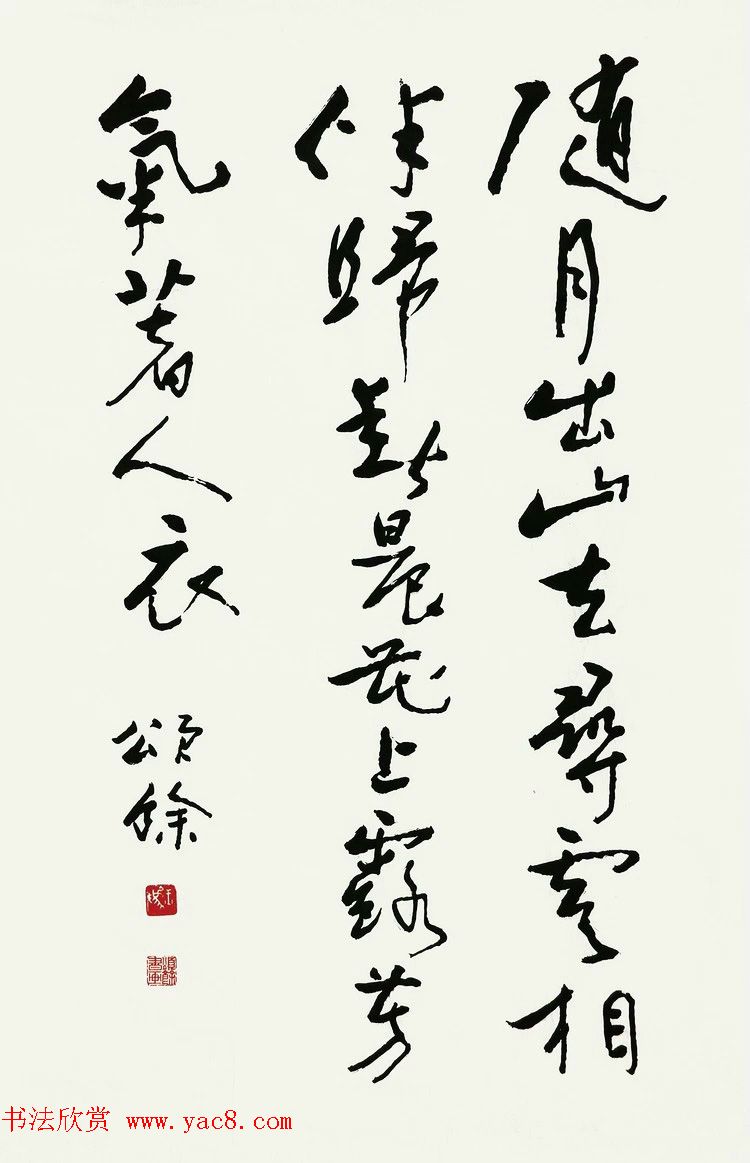 隨月出山去尋雲相
伴歸晨花上露芳
氣著人衣
頌餘
书法欣赏 www.yac8.com